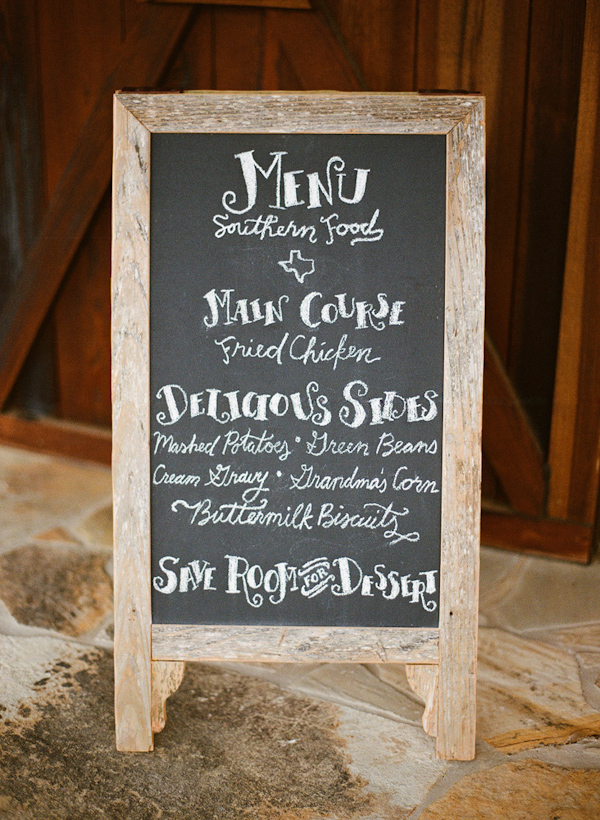 Menu
Southern Food
Main Course
Fried Chicken
Delicious Sides
Mashed Potatoes • Green Beans
Cream Gravy • Grandma's Corn
Buttermilk Biscuits
Save Room for Dessert